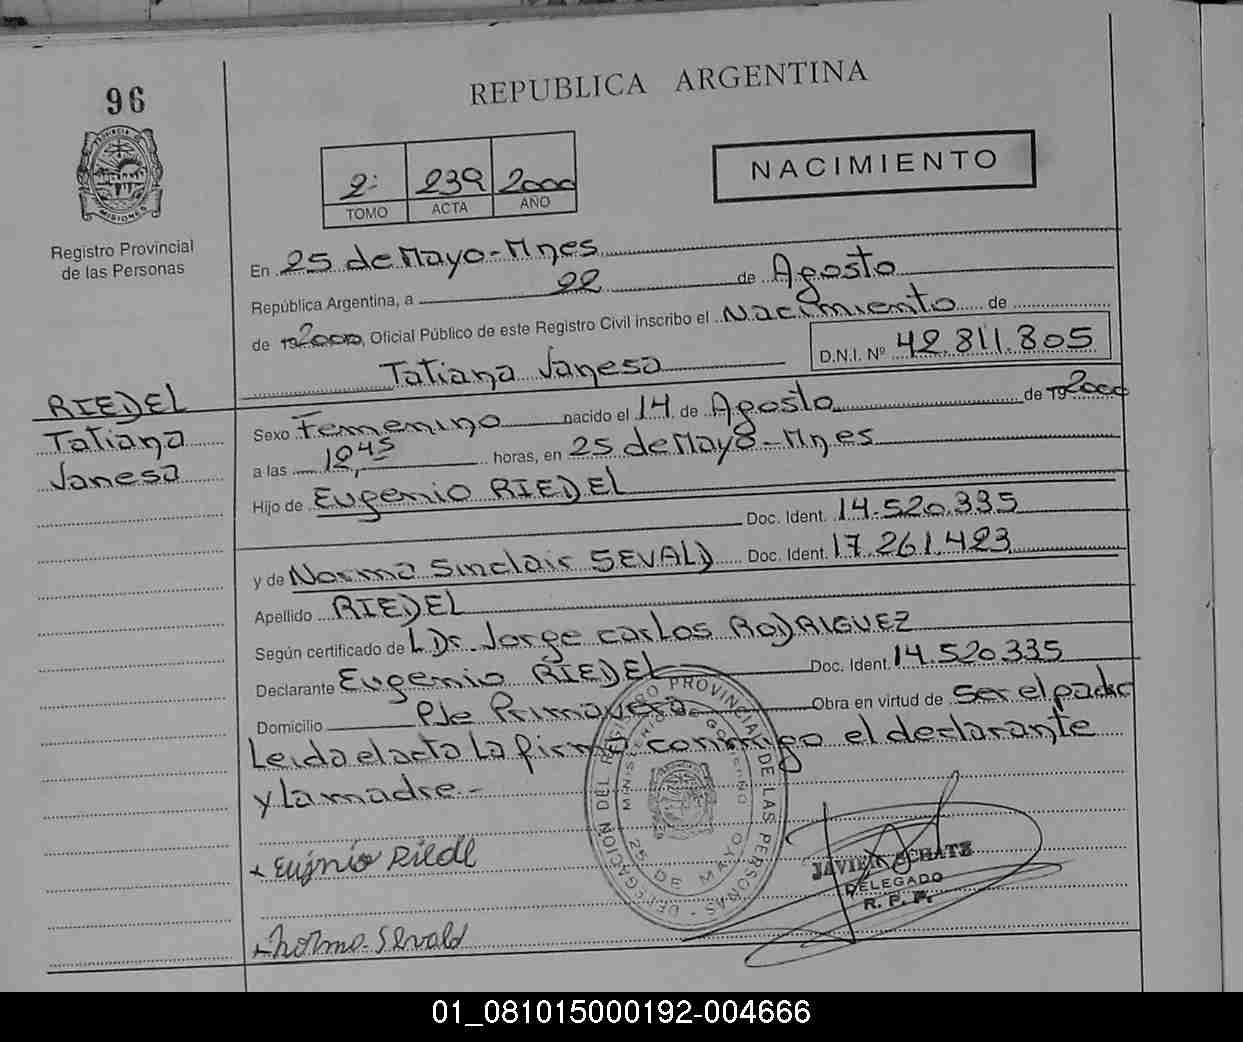 96
REPUBLICA ARGENTINA
PROVINCIA DE MISIONES
Registro Provincial
de las Personas
2: 239 2000
TOMO ACTA AÑO
NACIMIENTO
En 25 de Mayo - Mnes
República Argentina, a 22 de Agosto
de 192000, Oficial Público de este Registro Civil inscribo el Nacimiento de
Tatiana Vanesa D.N.I. Nº 42.811.805
RIEDEL
Tatiana
Vanesa
Sexo Femenino nacido el 14 de Agosto de 192000
a las 12,45 horas, en 25 de Mayo - Mnes
Hijo de Eugenio RIEDEL
Doc. Ident. 14.520.335
y de Norma Sinclair SEVALD Doc. Ident. 17.261.423
Apellido RIEDEL
Según certificado de L Dr. Jorge Carlos RODRIGUEZ
Declarante Eugenio RIEDEL Doc. Ident. 14.520.335
Domicilio Pje Primavera Obra en virtud de Ser el padre
Leida el acta la firma conmigo el declarante
y la madre.-
DELEGACION DEL REGISTRO PROVINCIAL DE LAS PERSONAS
MINISTERIO DE GOBIERNO
25 DE MAYO
Eujnio Riedl
JAVIER
DELEGADO
R. P. P.
Norma Sevald
01_081015000192-004666